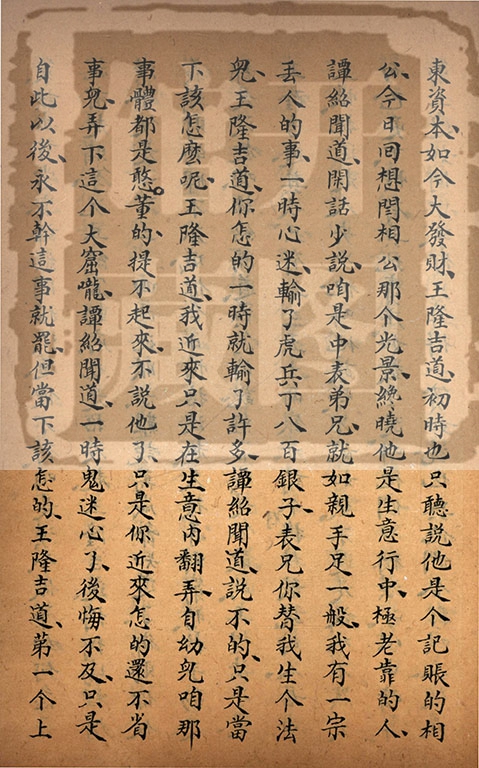 東資本、如今大發財、王隆吉道、初時也只聽説他是个記賬的相
公、今日回想閆相公那个光景、終曉他是生意行中、極老靠的人、
譚紹聞道、閑話少説、咱是中表弟兄、就如親手足一般、我有一宗
丢人的事、一時心迷、輸了虎兵丁八百銀子、表兄你替我生个法
兒、王隆吉道、你怎的一時就輸了許多、譚紹聞道、説不的、只是當
下該怎麽呢、王隆吉道、我近來只是在生意內翻弄、自幼兒咱那
事體都是憨董的、提不起來、不説他了、只是你近來怎的還不省
事、兒弄下這个大窟嚨、譚紹聞道、一時鬼迷心了、後悔不及、只是
自此以後、永不幹這事就罷、但當下該怎的、王隆吉道、第一个上